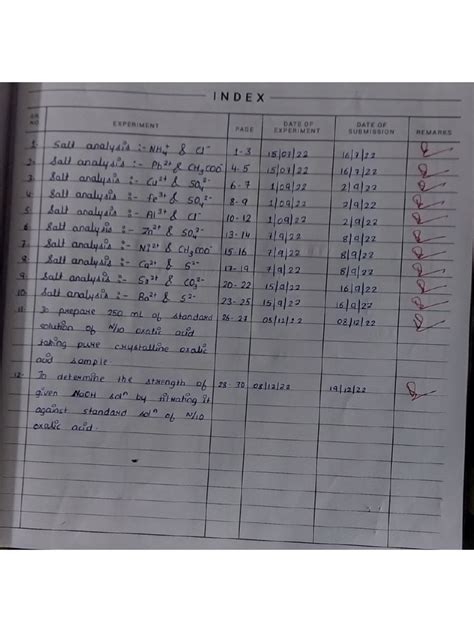 INDEX
SR. NO. EXPERIMENT PAGE DATE OF EXPERIMENT DATE OF SUBMISSION REMARKS
1. Salt analysis :- NH₄⁺ & Cl⁻ 1-3 15/07/22 16/7/22
2. Salt analysis :- Pb²⁺ & CH₃COO⁻ 4-5 15/07/22 16/7/22
3. Salt analysis :- Cu²⁺ & SO₄²⁻ 6-7 1/09/22 2/9/22
4. Salt analysis :- Fe³⁺ & SO₄²⁻ 8-9 1/09/22 2/9/22
5. Salt analysis :- Al³⁺ & Cl⁻ 10-12 1/09/22 2/9/22
6. Salt analysis :- Zn²⁺ & SO₄²⁻ 13-14 7/9/22 8/9/22
7. Salt analysis :- Ni²⁺ & CH₃COO⁻ 15-16 7/9/22 8/9/22
8. Salt analysis :- Ca²⁺ & S²⁻ 17-19 7/9/22 8/9/22
9. Salt analysis :- Sr²⁺ & CO₃²⁻ 20-22 15/9/22 16/9/22
10. Salt analysis :- Ba²⁺ & S²⁻ 23-25 15/9/22 16/9/22
11. To prepare 250 mL of standard 26-27 08/12/22 08/12/22
solution of N/10 oxalic acid
taking pure crystalline oxalic
acid sample
12. To determine the strength of 28-30 08/12/22 19/12/22
given NaOH solⁿ by titrating it
against standard solⁿ of N/10
oxalic acid.